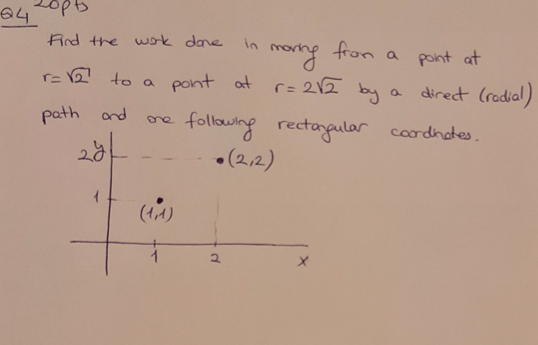 Q4 20pts
Find the work done in moving from a point at
r=√2 to a point at r=2√2 by a direct (radial)
path and one following rectangular coordinates.
y
2
(2,2)
1
(1,1)
1 2 x